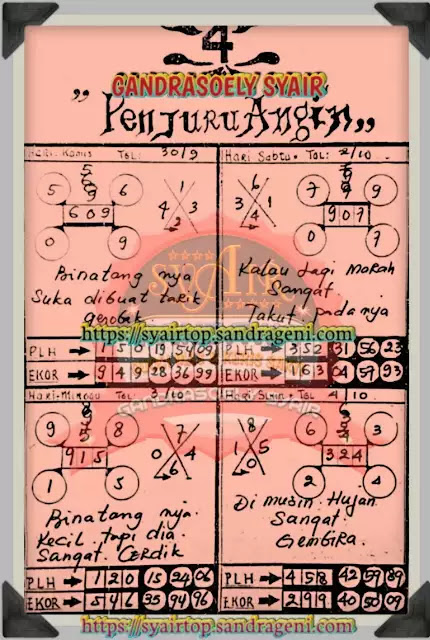 4
GANDRASOELY SYAIR
"Penjuru Angin"
Hari. Kamis TGL: 30/9
5 6
609
0 9
1
4 3
2
Binatang nya
Suka dibuat tarik
gerobak
PLH → 1 5 0 19 54 09
EKOR → 9 4 9 28 36 99
Hari Sabtu. TGL: 2/10
6
3 1
4
7 9
907
0 7
Kalau lagi marah
Sangat
Takut padanya
https://syairtop.sandrageni.com
PLH → 3 5 2 31 56 23
EKOR → 1 6 3 04 57 93
GANDRASOELY SYAIR
Hari-Minggu TGL 10
9 8
915
1 5
7
0 4
6
Binatang nya.
Kecil tapi dia.
Sangat Cerdik
PLH → 1 2 0 15 24 06
EKOR → 5 4 6 35 94 96
TGL 4 10
8
1 5
0
6 3
324
2 4
Di musin Hujan
Sangat.
Gembira.
PLH → 4 5 8 42 59 89
EKOR → 2 9 9 40 50 09
https://syairtop.sandrageni.com